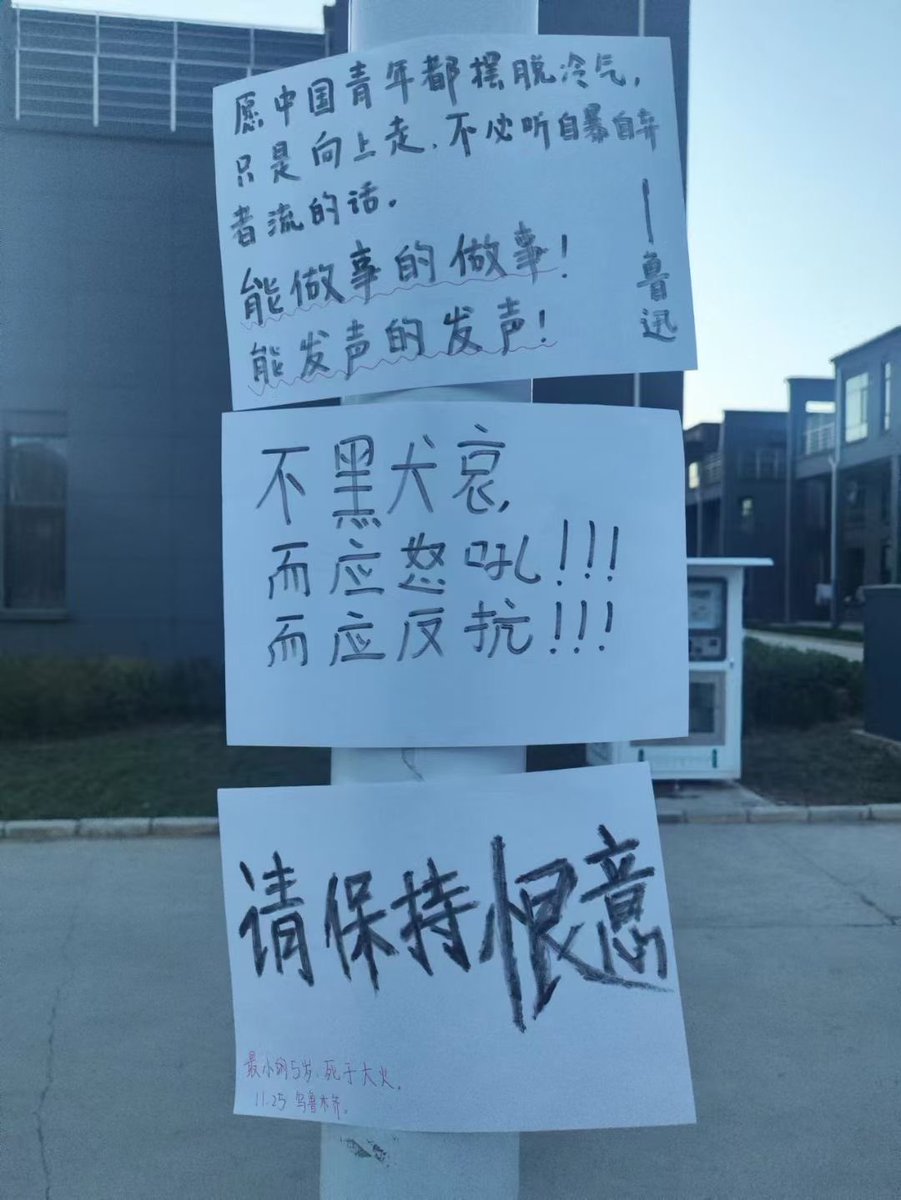 愿中国青年都摆脱冷气，
只是向上走，不必听自暴自弃
者流的话。
能做事的做事！
能发声的发声！
——鲁迅
不黑犬哀，
而应怒吼！！！
而应反抗！！！
请保持恨意
最小的5岁，死于大火。
11.25 乌鲁木齐。